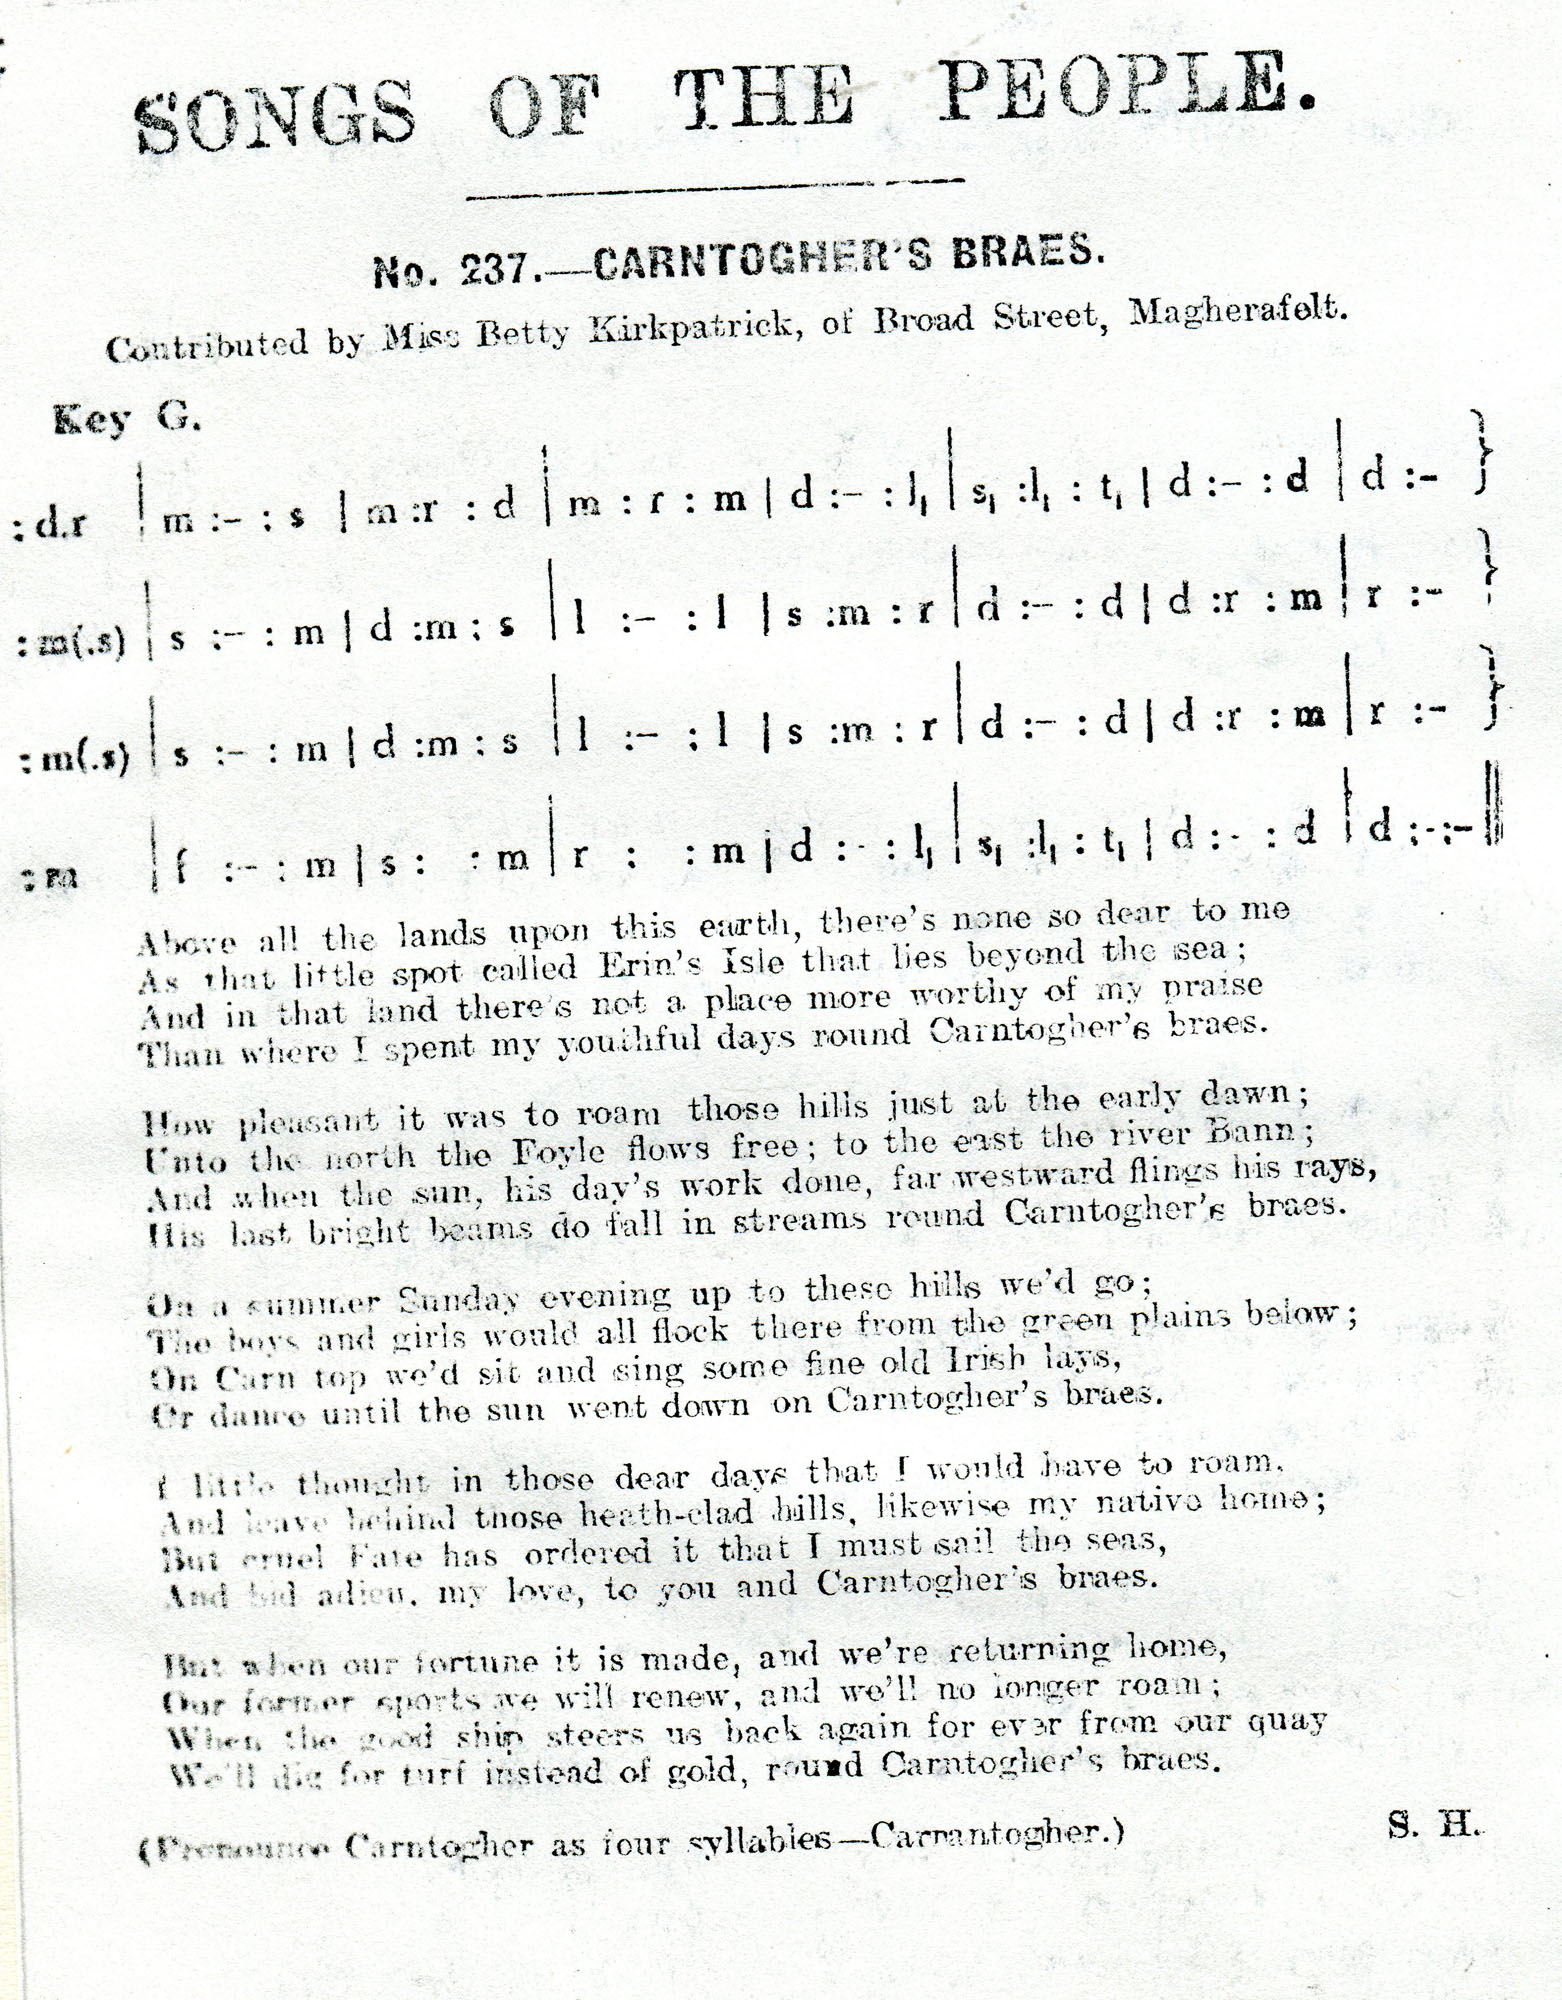 SONGS OF THE PEOPLE.
No. 237.—CARNTOGHER'S BRAES.
Contributed by Miss Betty Kirkpatrick, of Broad Street, Magherafelt.
Key G.
: d.r | m :– : s | m :r : d | m : r : m | d :– : l₁ | s₁ :l₁ : t₁ | d :– : d | d :– }
: m(.s) | s :– : m | d :m : s | l :– : l | s :m : r | d :– : d | d :r : m | r :– }
: m(.s) | s :– : m | d :m : s | l :– : l | s :m : r | d :– : d | d :r : m | r :– }
: m | f :– : m | s : : m | r : : m | d :– : l₁ | s₁ :l₁ : t₁ | d :– : d | d :–:– ||
Above all the lands upon this earth, there's none so dear to me
As that little spot called Erin's Isle that lies beyond the sea;
And in that land there's not a place more worthy of my praise
Than where I spent my youthful days round Carntogher's braes.
How pleasant it was to roam those hills just at the early dawn;
Unto the north the Foyle flows free; to the east the river Bann;
And when the sun, his day's work done, far westward flings his rays,
His last bright beams do fall in streams round Carntogher's braes.
On a summer Sunday evening up to these hills we'd go;
The boys and girls would all flock there from the green plains below;
On Carn top we'd sit and sing some fine old Irish lays,
Or dance until the sun went down on Carntogher's braes.
I little thought in those dear days that I would have to roam,
And leave behind those heath-clad hills, likewise my native home;
But cruel Fate has ordered it that I must sail the seas,
And bid adieu, my love, to you and Carntogher's braes.
But when our fortune it is made, and we're returning home,
Our former sports we will renew, and we'll no longer roam;
When the good ship steers us back again for ever from our quay
We'll dig for turf instead of gold, round Carntogher's braes.
(Pronounce Carntogher as four syllables—Carrantogher.) S. H.